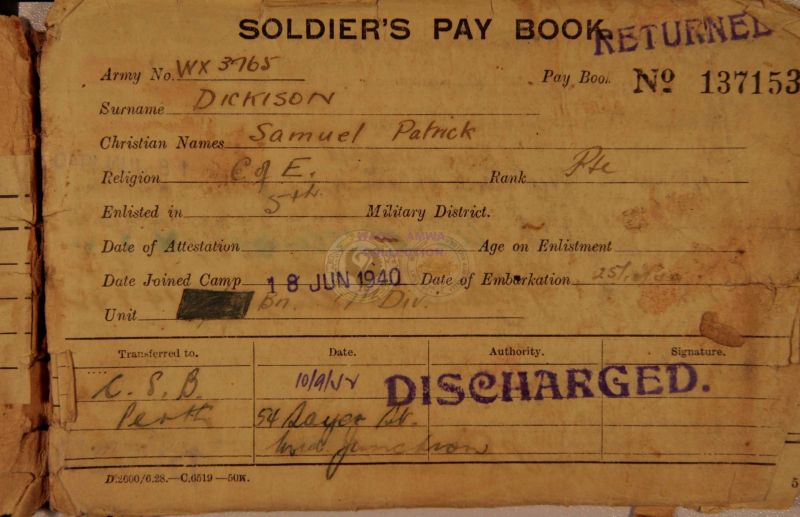 SOLDIER'S PAY BOOK
RETURNED
Army No. WX 3765 Pay Book No 137153
Surname DICKISON
Christian Names Samuel Patrick
Religion C of E. Rank Pte
Enlisted in 5th Military District.
Date of Attestation Age on Enlistment
Date Joined Camp 18 JUN 1940 Date of Embarkation
Unit Bn. 7th Div.
Transferred to. Date. Authority. Signature.
C. S. B. 10/9/52 DISCHARGED.
Perth 54 Sayer St.
Mid Junction
D.2600/6.28.—C.6519—50W. 5